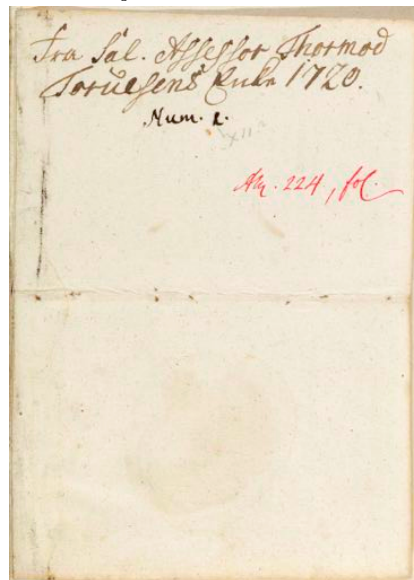 Fra Sál. Assessor Thormod
Torvesens Enke 1720.
Num. 1.
AM. 224, fol.